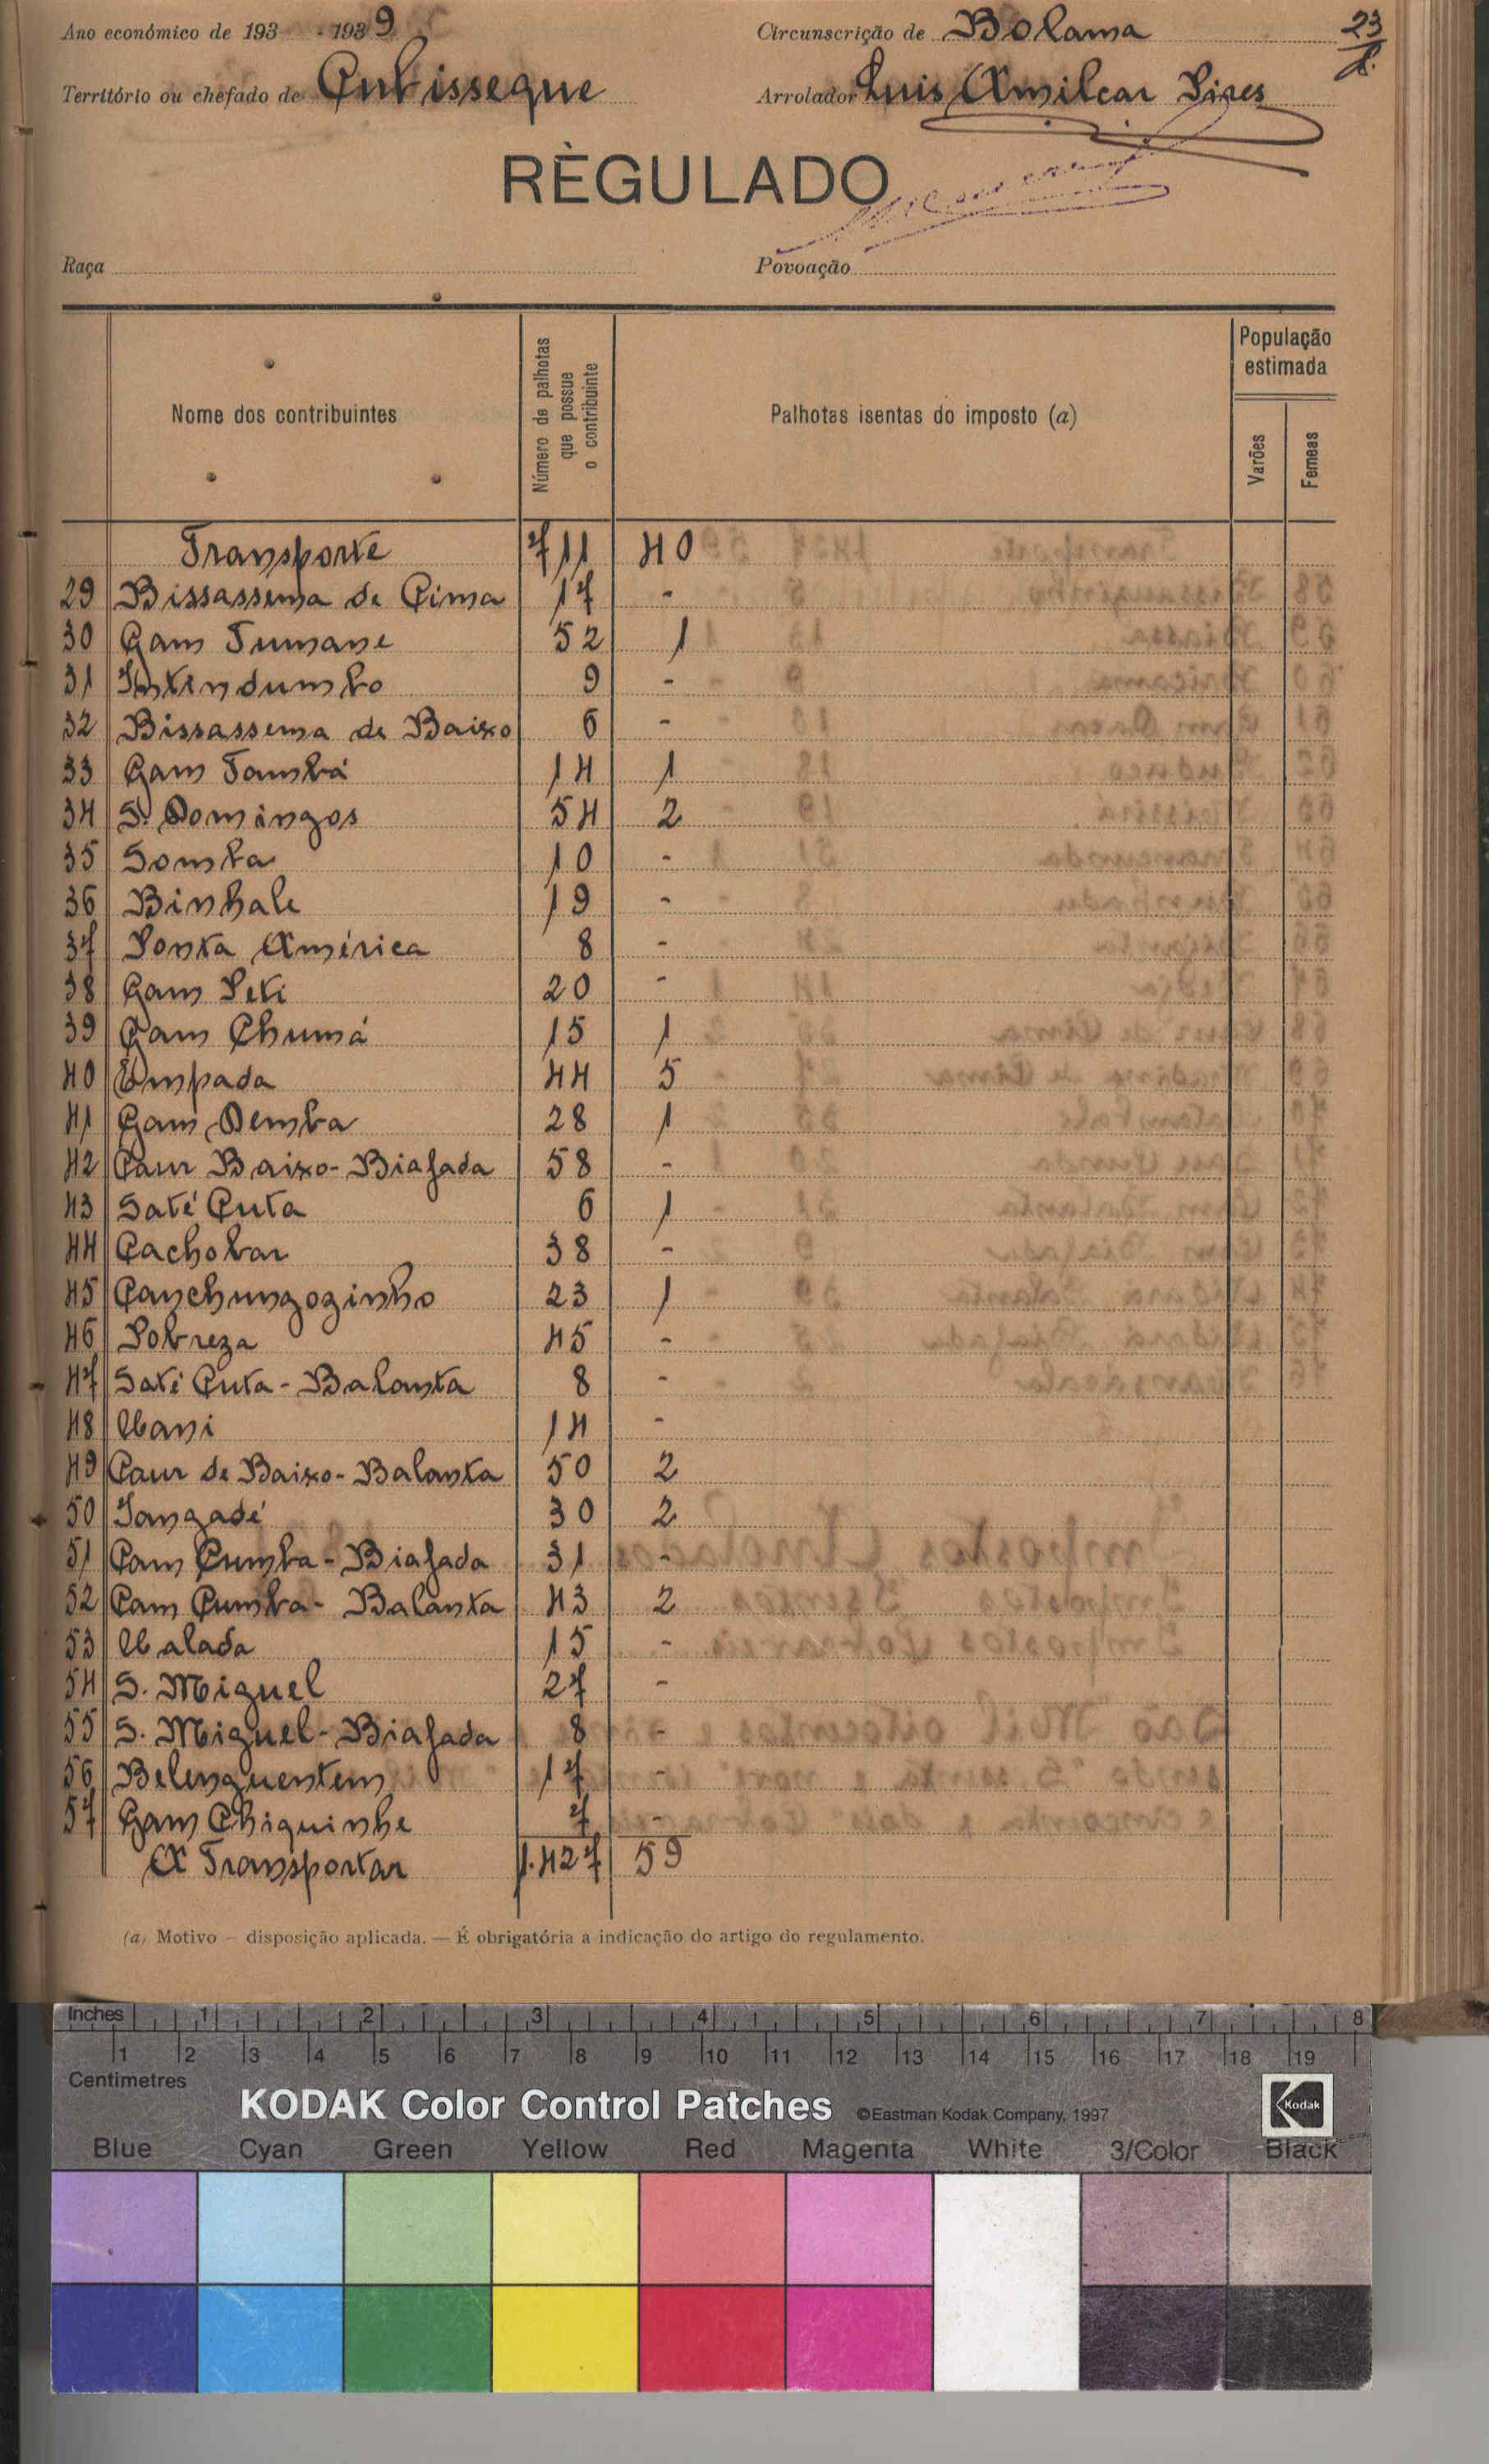 Ano económico de 193 -1939
Circunscrição de Bolama
23
Território ou chefado de Cubisseque
Arrolador Luis Amilcar Pires
RÈGULADO
Raça
Povoação
Nome dos contribuintes
Número de palhotas que possue o contribuinte
Palhotas isentas do imposto (a)
População estimada
Varões
Femeas
Transporte 711 40
29 Bissassema de Cima 17 -
30 Gam Tumane 52 1
31 Intindumbo 9 -
32 Bissassema de Baixo 6 -
33 Gam Tambá 14 1
34 S. Domingos 54 2
35 Somba 10 -
36 Binhale 19 -
37 Ponta América 8 -
38 Gam Peti 20 -
39 Gam Chumá 15 1
40 Empada 44 5
41 Gam Demba 28 1
42 Caur Baixo-Biafada 58 -
43 Saté Cuta 6 1
44 Cachobar 38 -
45 Canchungozinho 23 1
46 Pobreza 45 -
47 Saté Cuta-Balanta 8 -
48 Uani 14 -
49 Caur de Baixo-Balanta 50 2
50 Iangadé 30 2
51 Cam Cumba-Biafada 31 -
52 Cam Cumba-Balanta 43 2
53 Ualada 15 -
54 S. Miguel 27 -
55 S. Miguel-Biafada 8 -
56 Belenguentem 17 -
57 Gam Chiquinhe 7 -
A Transportar 1.427 59
(a) Motivo — disposição aplicada. — É obrigatória a indicação do artigo do regulamento.
Inches 1 2 3 4 5 6 7 8
1 2 3 4 5 6 7 8 9 10 11 12 13 14 15 16 17 18 19
Centimetres
KODAK Color Control Patches ©Eastman Kodak Company, 1997
Kodak
Blue Cyan Green Yellow Red Magenta White 3/Color Black